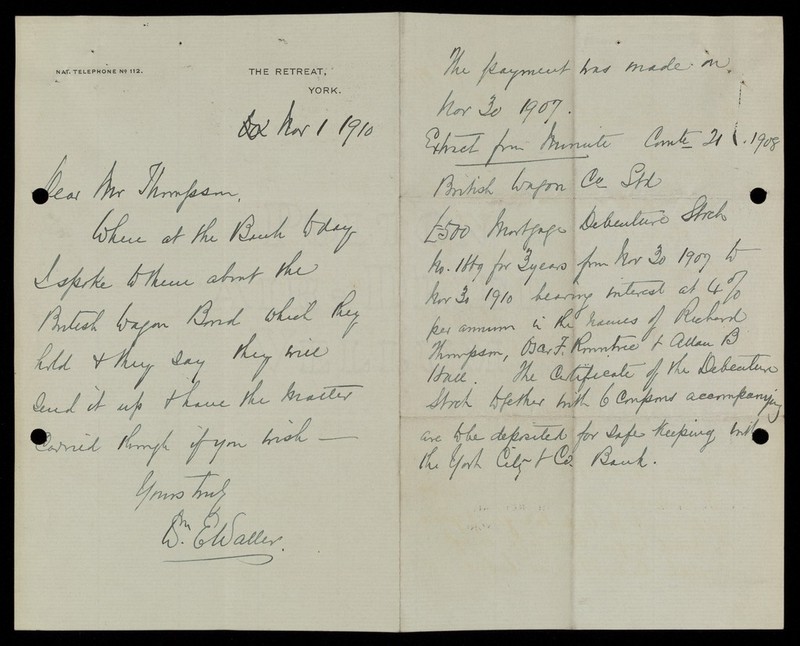 NAT. TELEPHONE Nº 112.
THE RETREAT,
YORK.
Nov 1 1910
Dear Mr Thompson,
When at the Bank today
I spoke to them about the
British Wagon Bond which they
hold & they say they will
send it up & have the matter
carried through if you wish —
Yours truly
Wm. E Waller.
The payment was made on
Nov 30 1907.
Extract from Minute Comte 21 1908
British Wagon Co Ltd
£500 Mortgage Debenture Stock
No. for 3 years from Nov 30 1907 to
Nov 30 1910 bearing interest at 4%
per annum in the names of Richard
Thompson, Oscar F. Rowntree & Allan B
. The Certificate of the Debenture
Stock together with 6 Coupons accompanying
are to be deposited for safe keeping with
the York City & Co. Bank.